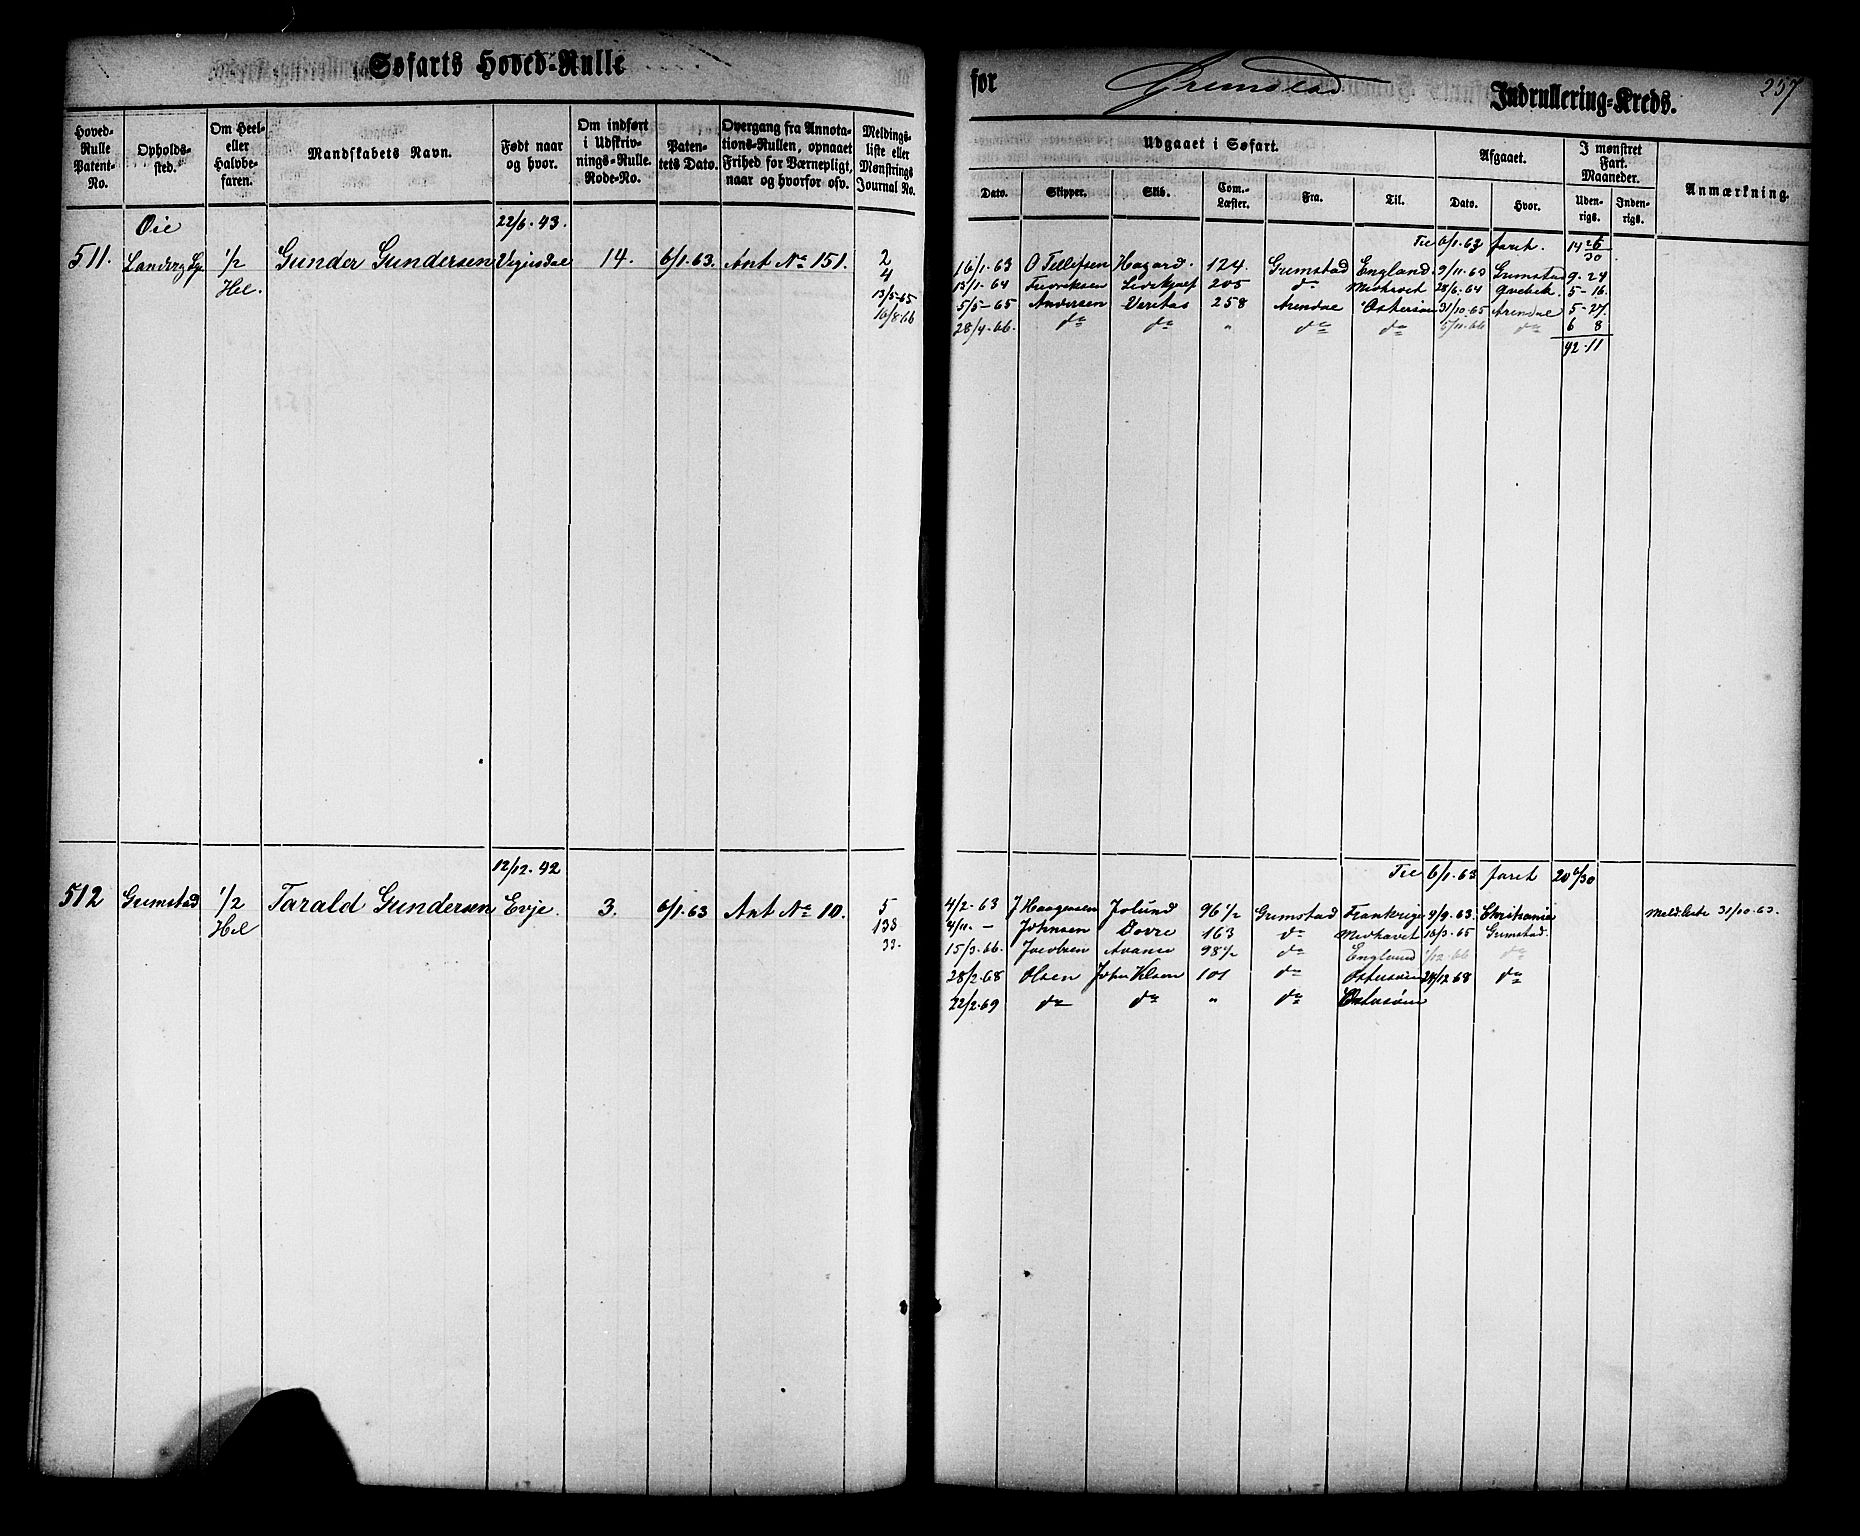 Søfarts Hoved-Rulle
for Grimstad Indrullering-Kreds. 257
Hoved-Rulle Patent-No. | Opholds-sted. | Om Heel- eller Halvbe-faren. | Mandskabets Navn. | Født naar og hvor. | Om indført i Udskriv-nings-Rulle. Rode-No. | Paten-tets Dato. | Overgang fra Annota-tions-Rullen, opnaaet Frihed for Værnepligt, naar og hvorfor osv. | Meldings-liste eller Mønstrings Journal No.
Udgaaet i Søfart. | Afgaaet. | I mønstret Fart. Maaneder. | Anmærkning.
Dato. | Skipper. | Skib. | Com.-Læster. | Fra. | Til. | Dato. | Hvor. | Uden-rigs. | Inden-rigs.
Øie | 22/6. 43.
511. | 1/2 | Gunder Gundersen | Vegusdal | 14. | 6/1. 63. | Ant No 151. | 2
Hel. | 4
13/5-65
16/8 66
Til 6/1. 63 faret. 14 26/30
16/1. 63 | O Tellefsen | Hagard. | 124. | Grimstad | England | 9/11. 63 | Grimstad | 9-24
13/1. 64 | Fredriksen | 205 | do | 28/6. 64 | Qvebek. | 5-16.
5/5-65 | Andersen | Veritas | 258 | Arendal | Østersøen | 31/10. 65 | Arendal | 5-27.
28/4. 66. | do | do | " | do | do | 5/11. 66 | do | 6 8
42. 11
12/12. 42
512 | Grimstad | 1/2 | Tarald Gundersen | Evje. | 3. | 6/1. 63 | Ant No 10. | 5
Hel | 138
33.
Til 6/1. 63 faret 20 6/30
4/2. 63 | J Haagensen | Jolund | 96 1/2 | Grimstad | Frankrige | 9/9. 63. | Christiania | Meldliste 31/10. 63.
4/11. - | Johnsen | Dovre | 163 | do | Midhavet | 16/3. 65 | Grimstad.
15/3. 66. | Jacobsen | Avance | 98 1/2 | do | England | 1/12. 66 | do
28/2. 68 | Olsen | John Vilson | 101 | do | Østersøen | 28/12. 68 | do
22/2. 69 | do | do | " | do | Østersøen